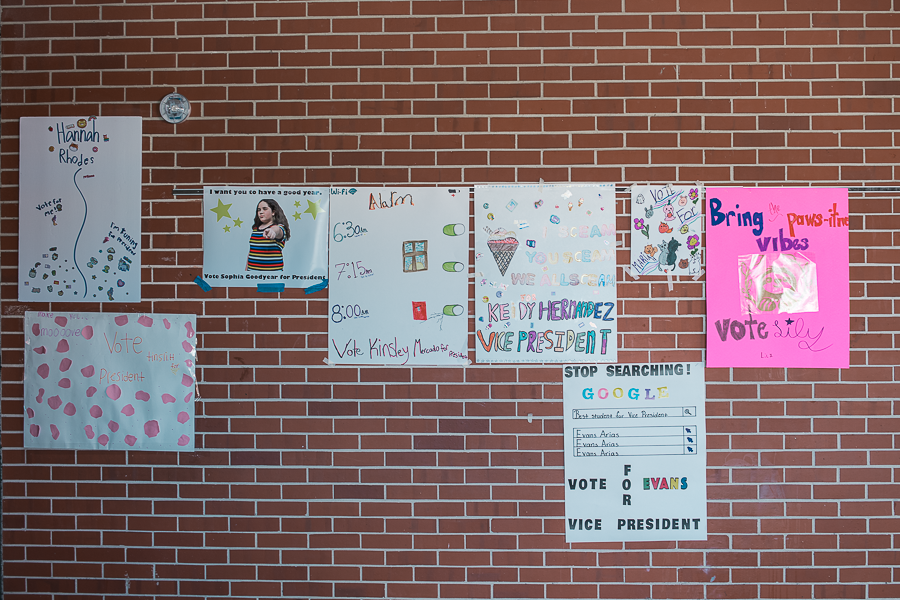 Hannah
Rhodes
Vote for
me!
I'm Running
for President
I want you to have a good year.
Vote Sophia Goodyear for President
Wi-Fi
Alarm
6:30am
7:15am
8:00am
Vote Kinsley Mercado for President
YOU SCREAM
WE ALL SCREAM
HERNANDEZ
VICE PRESIDENT
VOTE
FOR
Bring the paws-itive
vibes
Vote Lily
Vote
for
President
STOP SEARCHING!
GOOGLE
Best student for Vice President
Evans Arias
Evans Arias
Evans Arias
VOTE FOR EVANS
VICE PRESIDENT